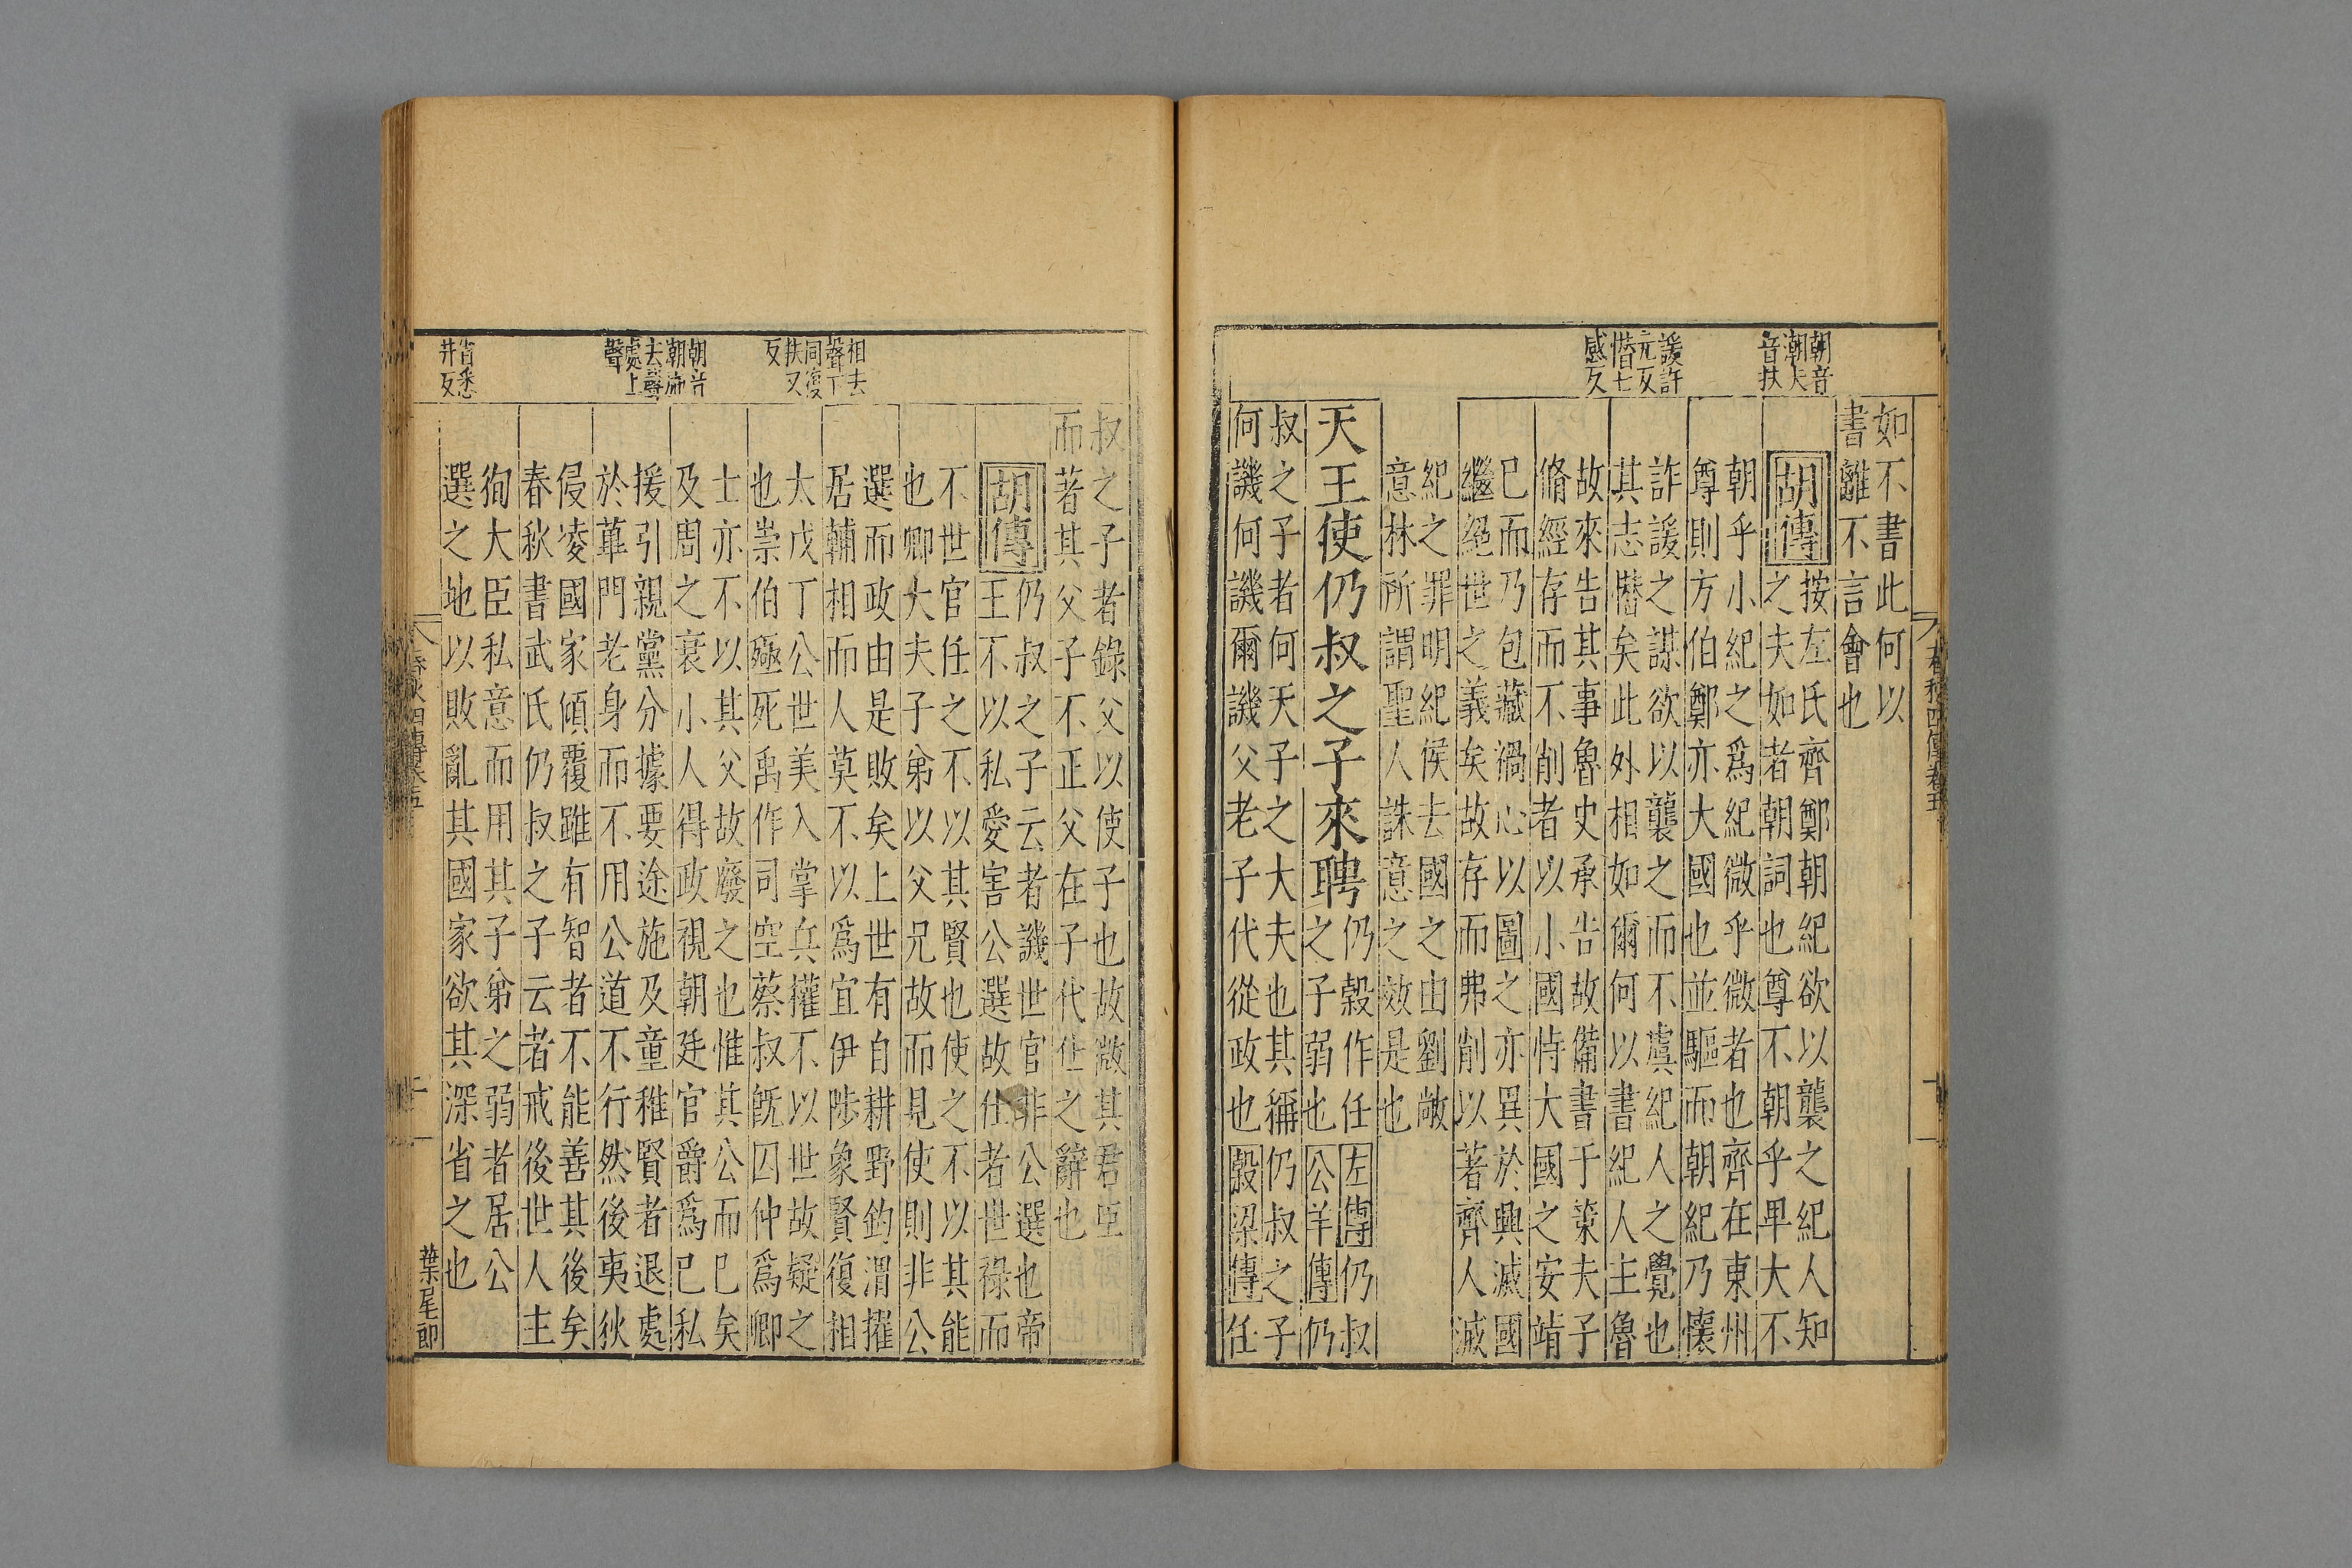 朝音
潮夫
音扶
諼許
元反
憯七
感反
春秋四傳卷五
如不書此何以
書離不言會也
胡傳
按左氏齊鄭朝紀欲以襲之紀人知
之夫如者朝詞也尊不朝乎卑大不
朝乎小紀之爲紀微乎微者也齊在東州
尊則方伯鄭亦大國也並驅而朝紀乃懷
詐諼之謀欲以襲之而不虞紀人之覺也
其志憯矣此外相如爾何以書紀人主魯
故來告其事魯史承告故備書于策夫子
脩經存而不削者以小國恃大國之安靖
巳而乃包藏禍心以圖之亦異於興滅國
繼絕世之義矣故存而弗削以著齊人滅
紀之罪明紀侯去國之由劉敞
意林所謂聖人誅意之效是也
天王使仍叔之子來聘
仍穀作任左傳仍叔
之子弱也公羊傳仍
叔之子者何天子之大夫也其稱仍叔之子
何譏何譏爾譏父老子代從政也穀梁傳任
相去
聲下
同復
扶又
反
朝音
潮施
去聲
處上
聲
省悉
井反
叔之子者錄父以使子也故微其君臣
而著其父子不正父在子代仕之辭也
胡傳
仍叔之子云者譏世官非公選也帝
王不以私愛害公選故仕者世祿而
不世官任之不以其賢也使之不以其能
也卿大夫子弟以父兄故而見使則非公
選而政由是敗矣上世有自耕野釣渭擢
居輔相而人莫不以爲宜伊陟象賢復相
太戊丁公世美入掌兵權不以世故疑之
也崇伯殛死禹作司空蔡叔旣囚仲爲卿
士亦不以其父故廢之也惟其公而已矣
及周之衰小人得政視朝廷官爵爲已私
援引親黨分據要途施及童稚賢者退處
於蓽門老身而不用公道不行然後夷狄
侵凌國家傾覆雖有智者不能善其後矣
春秋書武氏仍叔之子云者戒後世人主
徇大臣私意而用其子弟之弱者居公
選之地以敗亂其國家欲其深省之也
春秋四傳卷五
十一
葉尾郎